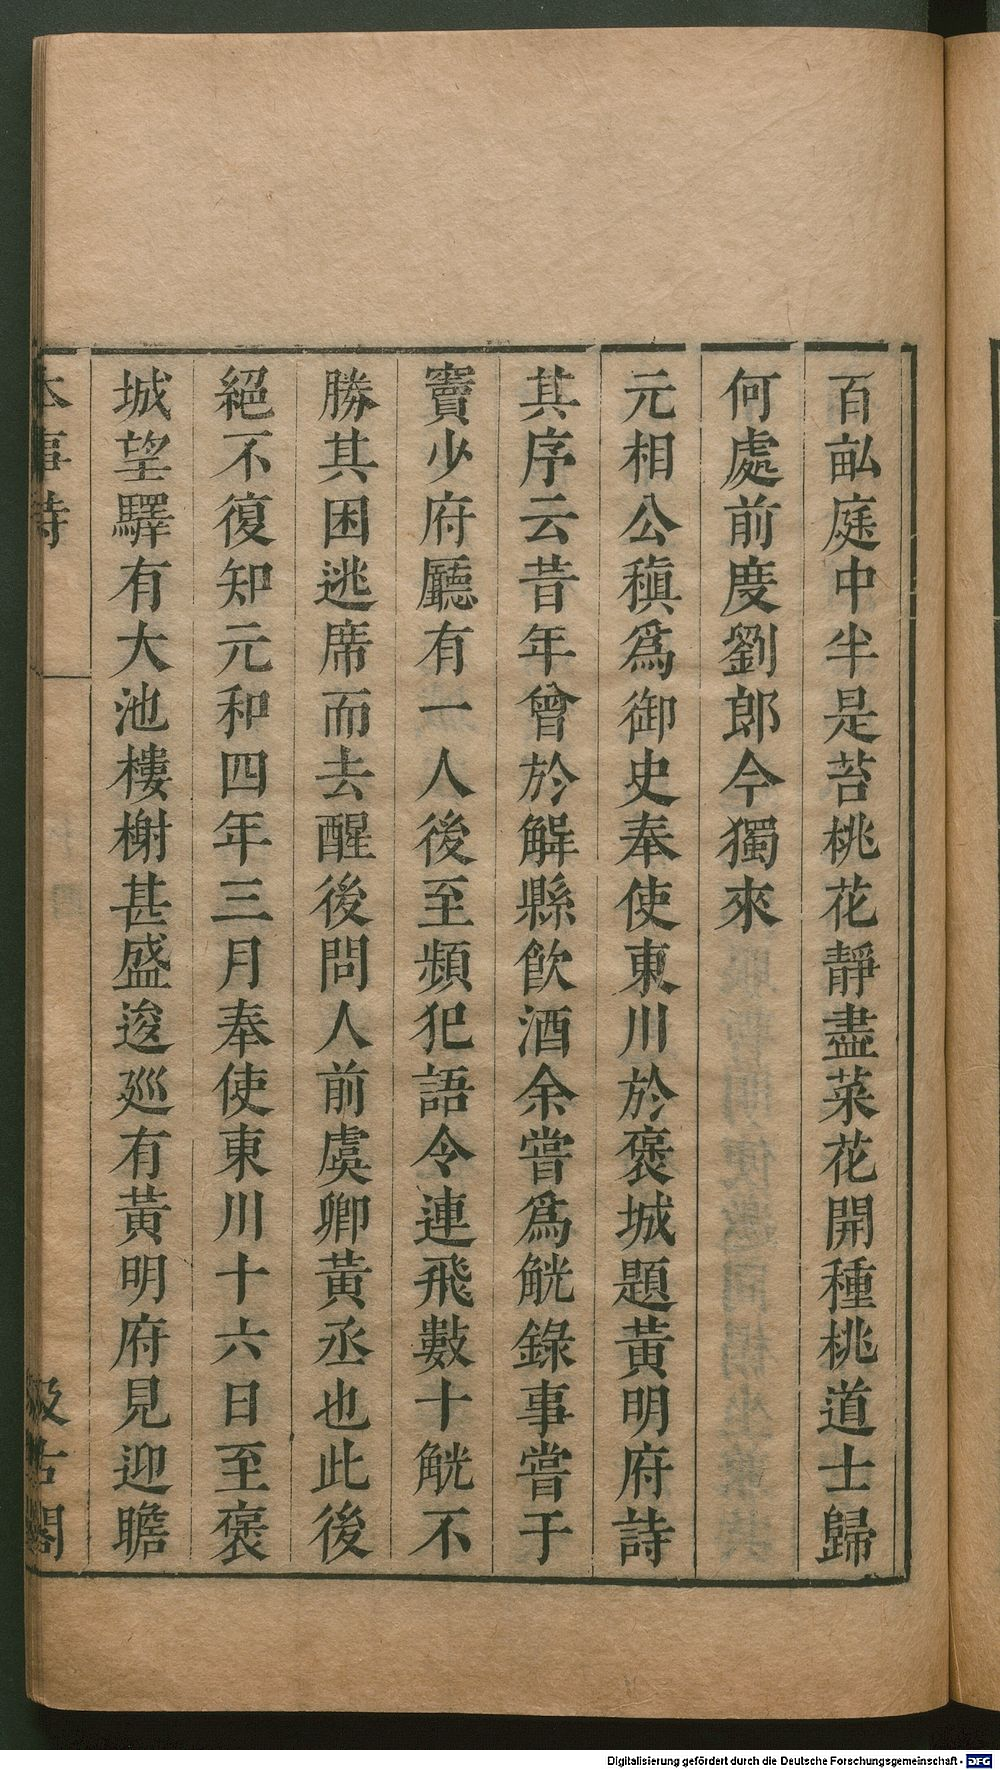 百畝庭中半是苔桃花靜盡菜花開種桃道士歸
何處前度劉郎今獨來
元相公稹爲御史奉使東川於褒城題黃明府詩
其序云昔年曾於解縣飮酒余嘗爲觥錄事嘗于
竇少府廳有一人後至頻犯語令連飛數十觥不
勝其困逃席而去醒後問人前虞卿黃丞也此後
絕不復知元和四年三月奉使東川十六日至褒
城望驛有大池樓榭甚盛逡巡有黃明府見迎瞻
本事詩
汲古閣
Digitalisierung gefördert durch die Deutsche Forschungsgemeinschaft - DFG